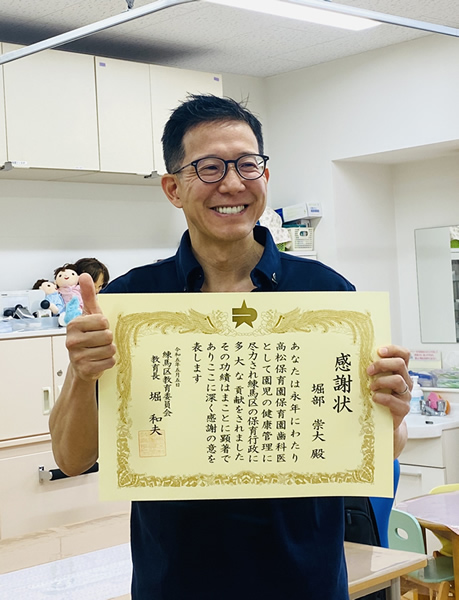 感謝状
堀部 崇大 殿
あなたは永年にわたり
高松保育園保育園歯科医
として園児の健康管理に
尽力され練馬区の保育行政に
多大な貢献をされました
その功績はまことに顕著で
ありここに深く感謝の意を
表します
令和五年五月五日
練馬区教育委員会
教育長 堀 和夫